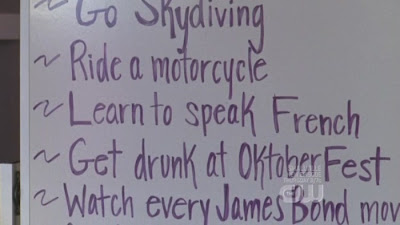 ~ Go Skydiving
~ Ride a motorcycle
~ Learn to speak French
~ Get drunk at OktoberFest
~ Watch every James Bond mov
CW